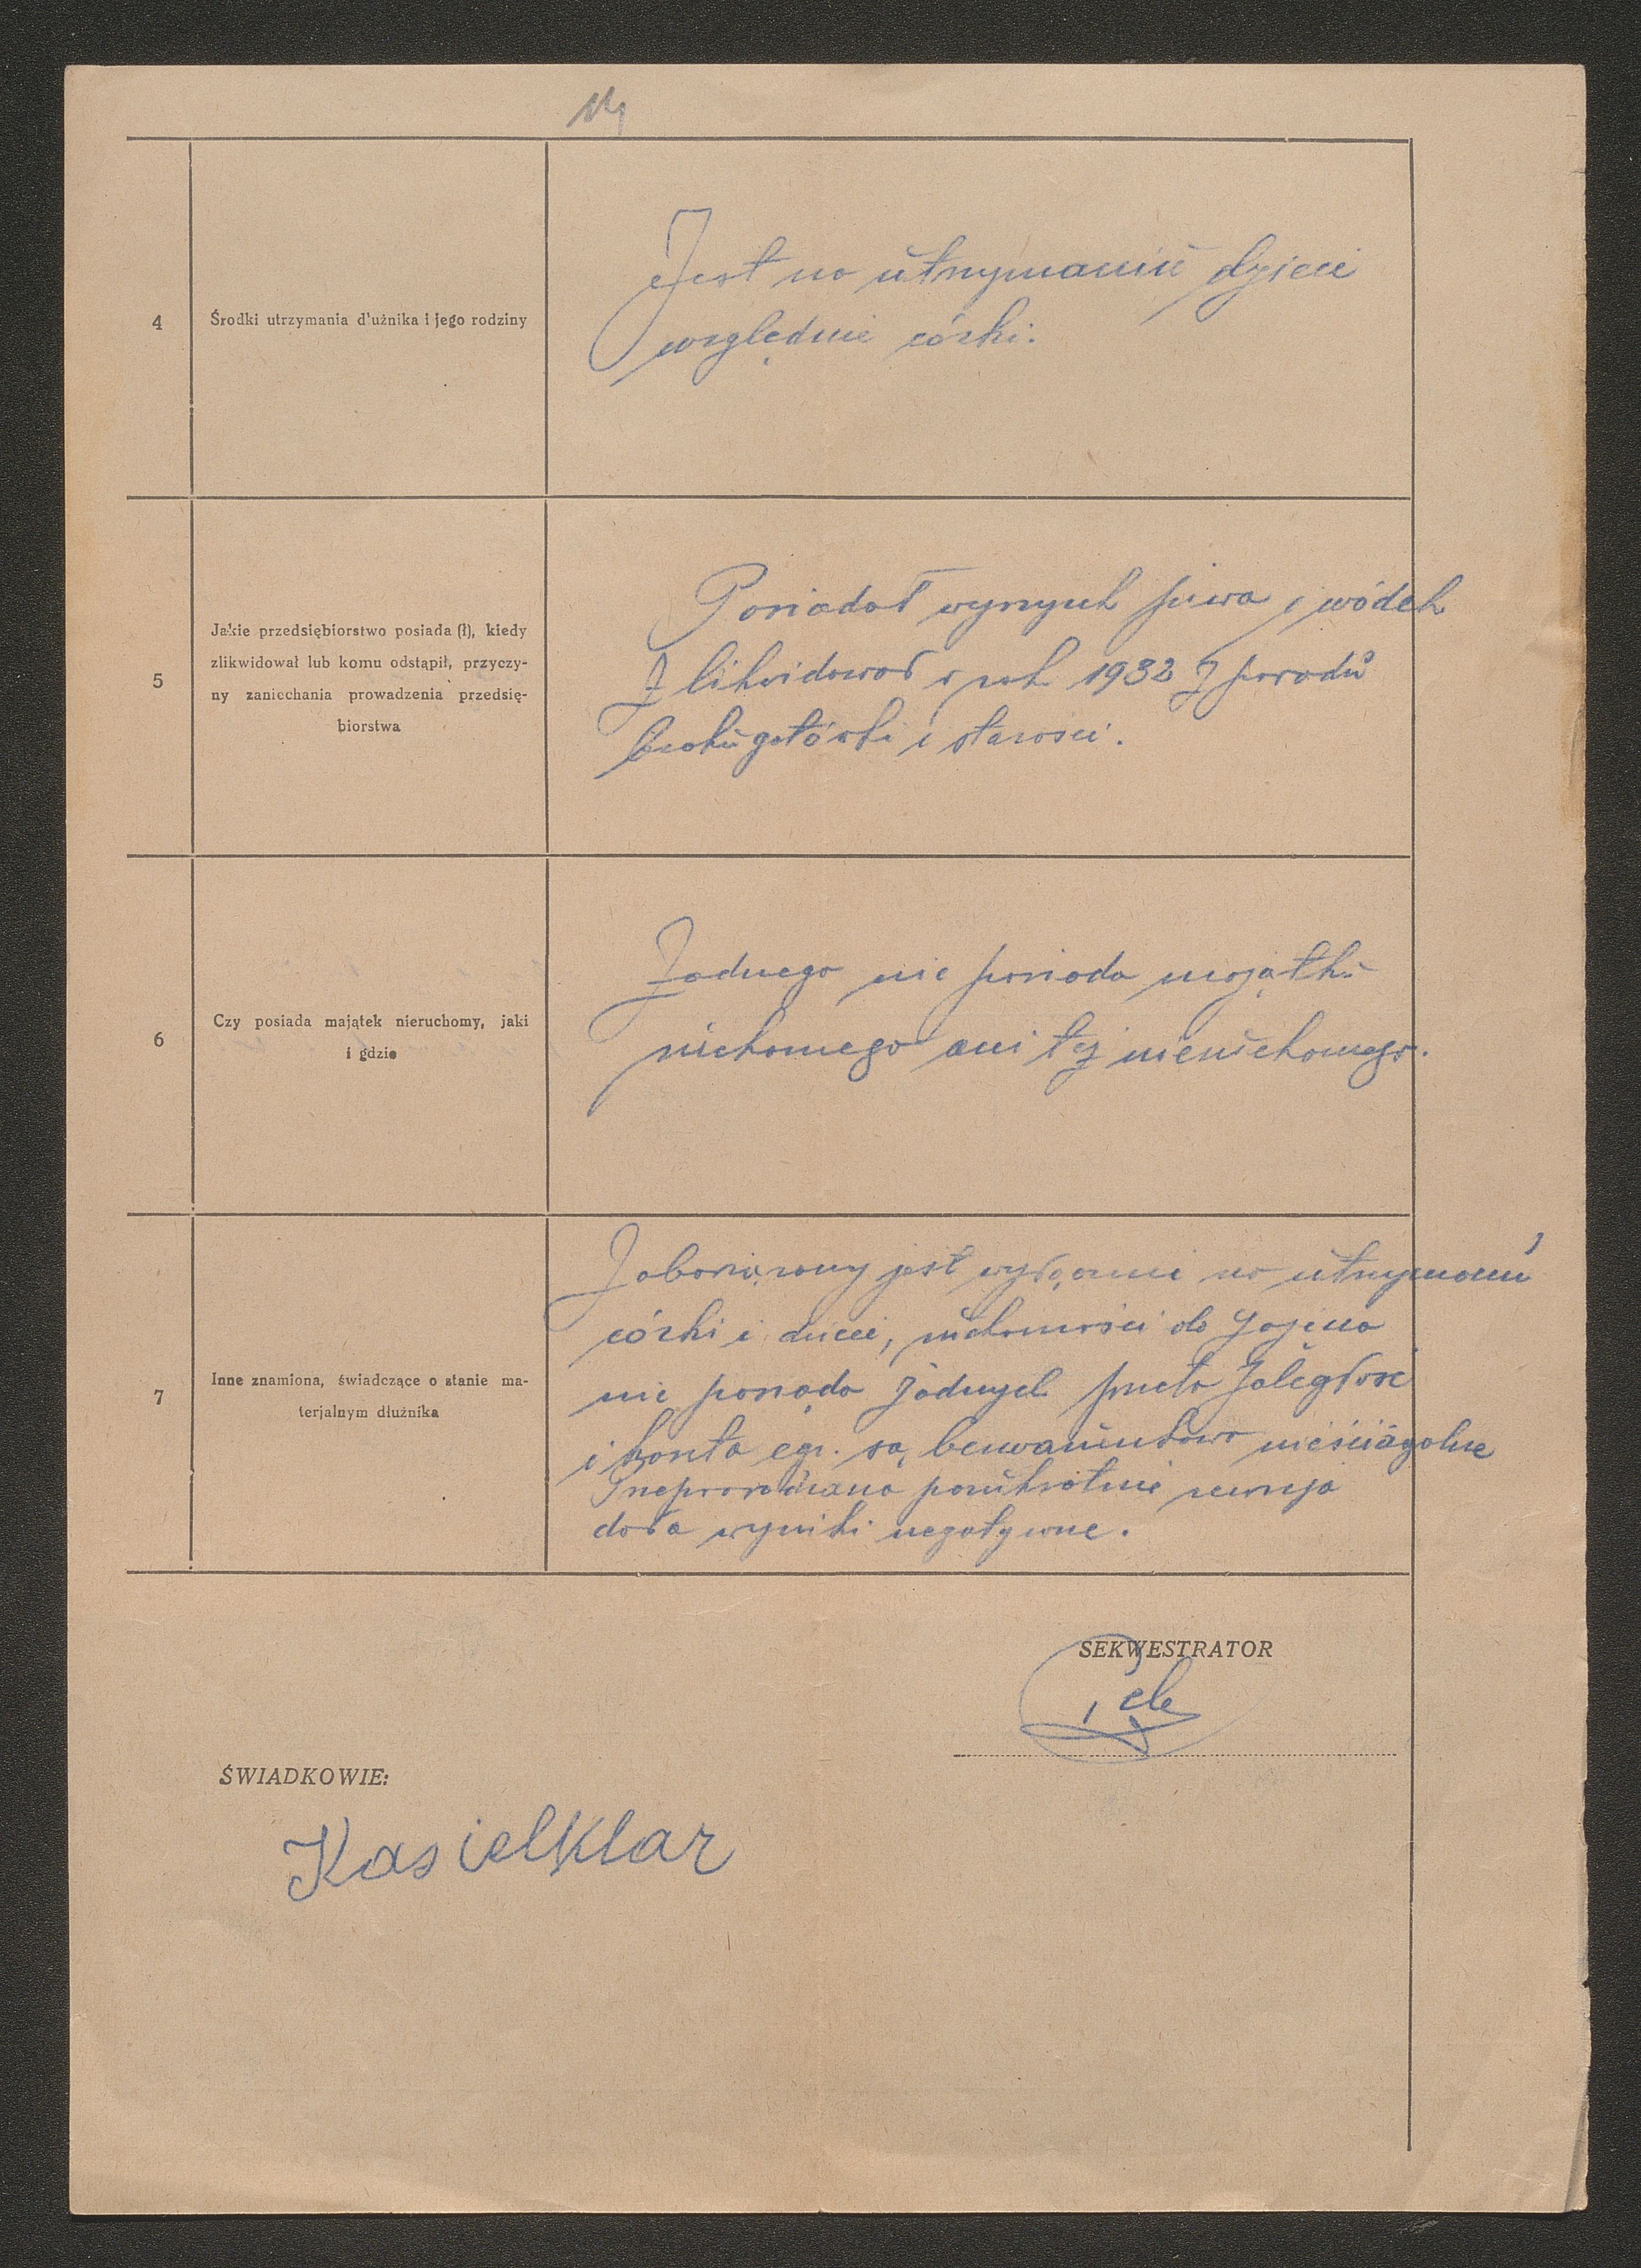 14
4
Środki utrzymania d'użnika i jego rodziny
Jest na utrzymaniu dzieci
względnie córki.
5
Jakie przedsiębiorstwo posiada (ł), kiedy
zlikwidował lub komu odstąpił, przyczy-
ny zaniechania prowadzenia przedsię-
biorstwa
Posiadał wyszynk piwa i wódek
Zlikwidował w rok 1932 z porodu
braku gotówki i starości.
6
Czy posiada majątek nieruchomy, jaki
i gdzie
Żadnego nie posiada majątku
ruchomego ani też nieruchomego.
7
Inne znamiona, świadczące o stanie ma-
terjalnym dłużnika
Zobowiązany jest wyłącznie na utrzymaniu
córki i dzieci, ruchomości do zajęcia
nie posiada żadnych przeto zaległość
i koszta egz. są bezwarunkowo nieściągalne
Przeprowadzana powtórnie rewizja
dała wyniki negatywne.
SEKWESTRATOR
ŚWIADKOWIE:
Kasielklar